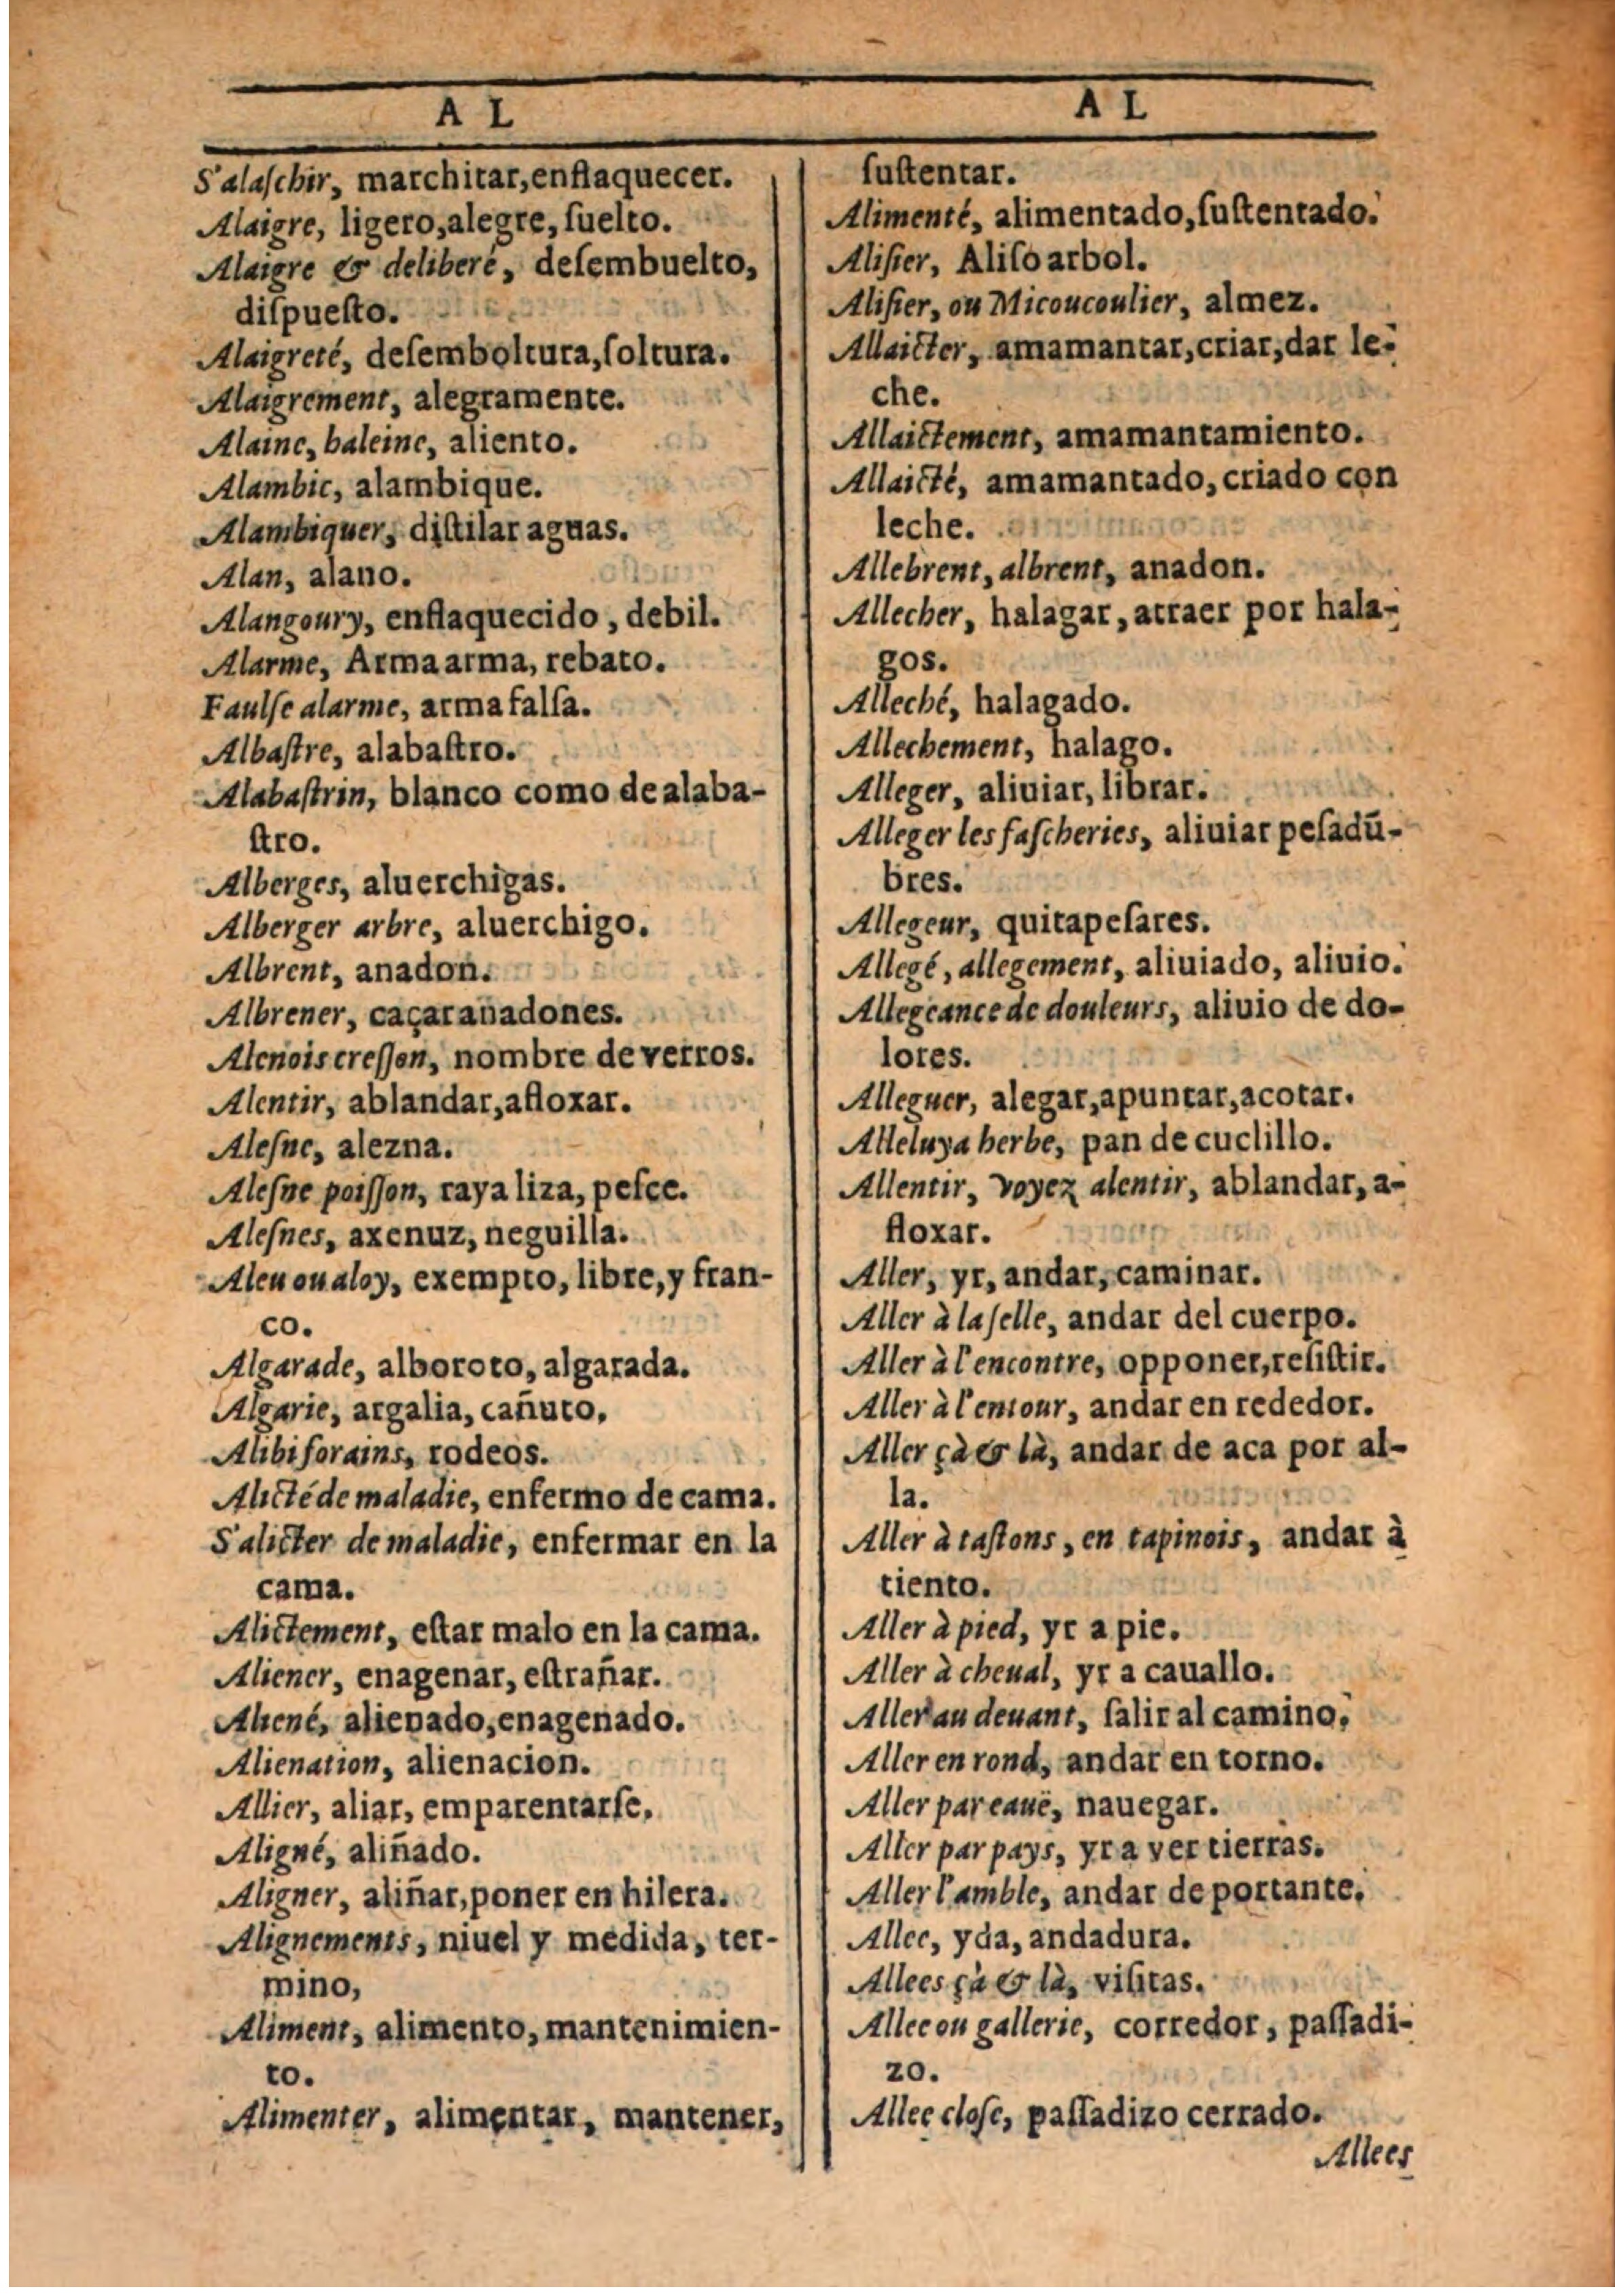 A L
S'alaſchir, marchitar,enflaquecer.
Alaigre, ligero,alegre, ſuelto.
Alaigre & deliberé, deſembuelto,
diſpueſto.
Alaigreté, deſemboltura,ſoltura.
Alaigrement, alegramente.
Alaine, haleine, aliento.
Alambic, alambique.
Alambiquer, diſtilar aguas.
Alan, alano.
Alangoury, enflaquecido, debil.
Alarme, Arma arma, rebato.
Faulſe alarme, arma falſa.
Albaſtre, alabaſtro.
Alabaſtrin, blanco como de alaba-
ſtro.
Alberges, aluerchigas.
Alberger arbre, aluerchigo.
Albrent, anadon.
Albrener, caçar anadones.
Alenois creſſon, nombre de verros.
Alentir, ablandar,afloxar.
Aleſne, alezna.
Aleſne poiſſon, raya liza, peſce.
Aleſnes, axenuz, neguilla.
Aleu ou aloy, exempto, libre, y fran-
co.
Algarade, alboroto, algarada.
Algarie, argalia, cañuto,
Alibiforains, rodeos.
Alicté de maladie, enfermo de cama.
S'alicter de maladie, enfermar en la
cama.
Alictement, eſtar malo en la cama.
Aliener, enagenar, eſtrañar.
Aliené, alienado,enagenado.
Alienation, alienacion.
Allier, aliar, emparentarſe.
Aligné, aliñado.
Aligner, aliñar,poner en hilera.
Alignements, niuel y medida, ter-
mino,
Aliment, alimento, mantenimien-
to.
Alimenter, alimentar, mantener,
A L
ſuſtentar.
Alimenté, alimentado,ſuſtentado.
Aliſier, Aliſo arbol.
Aliſier, ou Micoucoulier, almez.
Allaicter, amamantar,criar,dar le-
che.
Allaictement, amamantamiento.
Allaicté, amamantado, criado con
leche.
Allebrent, albrent, anadon.
Allecher, halagar, atraer por hala-
gos.
Alleché, halagado.
Allechement, halago.
Alleger, aliuiar, librar.
Alleger les faſcheries, aliuiar peſadū-
bres.
Allegeur, quitapeſares.
Allegé, allegement, aliuiado, aliuio.
Allegeance de douleurs, aliuio de do-
lores.
Alleguer, alegar,apuntar,acotar.
Alleluya herbe, pan de cuclillo.
Allentir, voyez alentir, ablandar, a-
floxar.
Aller, yr, andar, caminar.
Aller à la ſelle, andar del cuerpo.
Aller à l'encontre, opponer,reſiſtir.
Aller à l'entour, andar en rededor.
Aller çà & là, andar de aca por al-
la.
Aller à taſtons, en tapinois, andar à
tiento.
Aller à pied, yr a pie.
Aller à cheual, yr a cauallo.
Aller au deuant, ſalir al camino.
Aller en rond, andar en torno.
Aller par eauë, nauegar.
Aller par pays, yr a ver tierras.
Aller l'amble, andar de portante.
Allee, yda, andadura.
Allees çà & là, viſitas.
Allee ou gallerie, corredor, paſſadi-
zo.
Allee cloſe, paſſadizo cerrado.
Allees